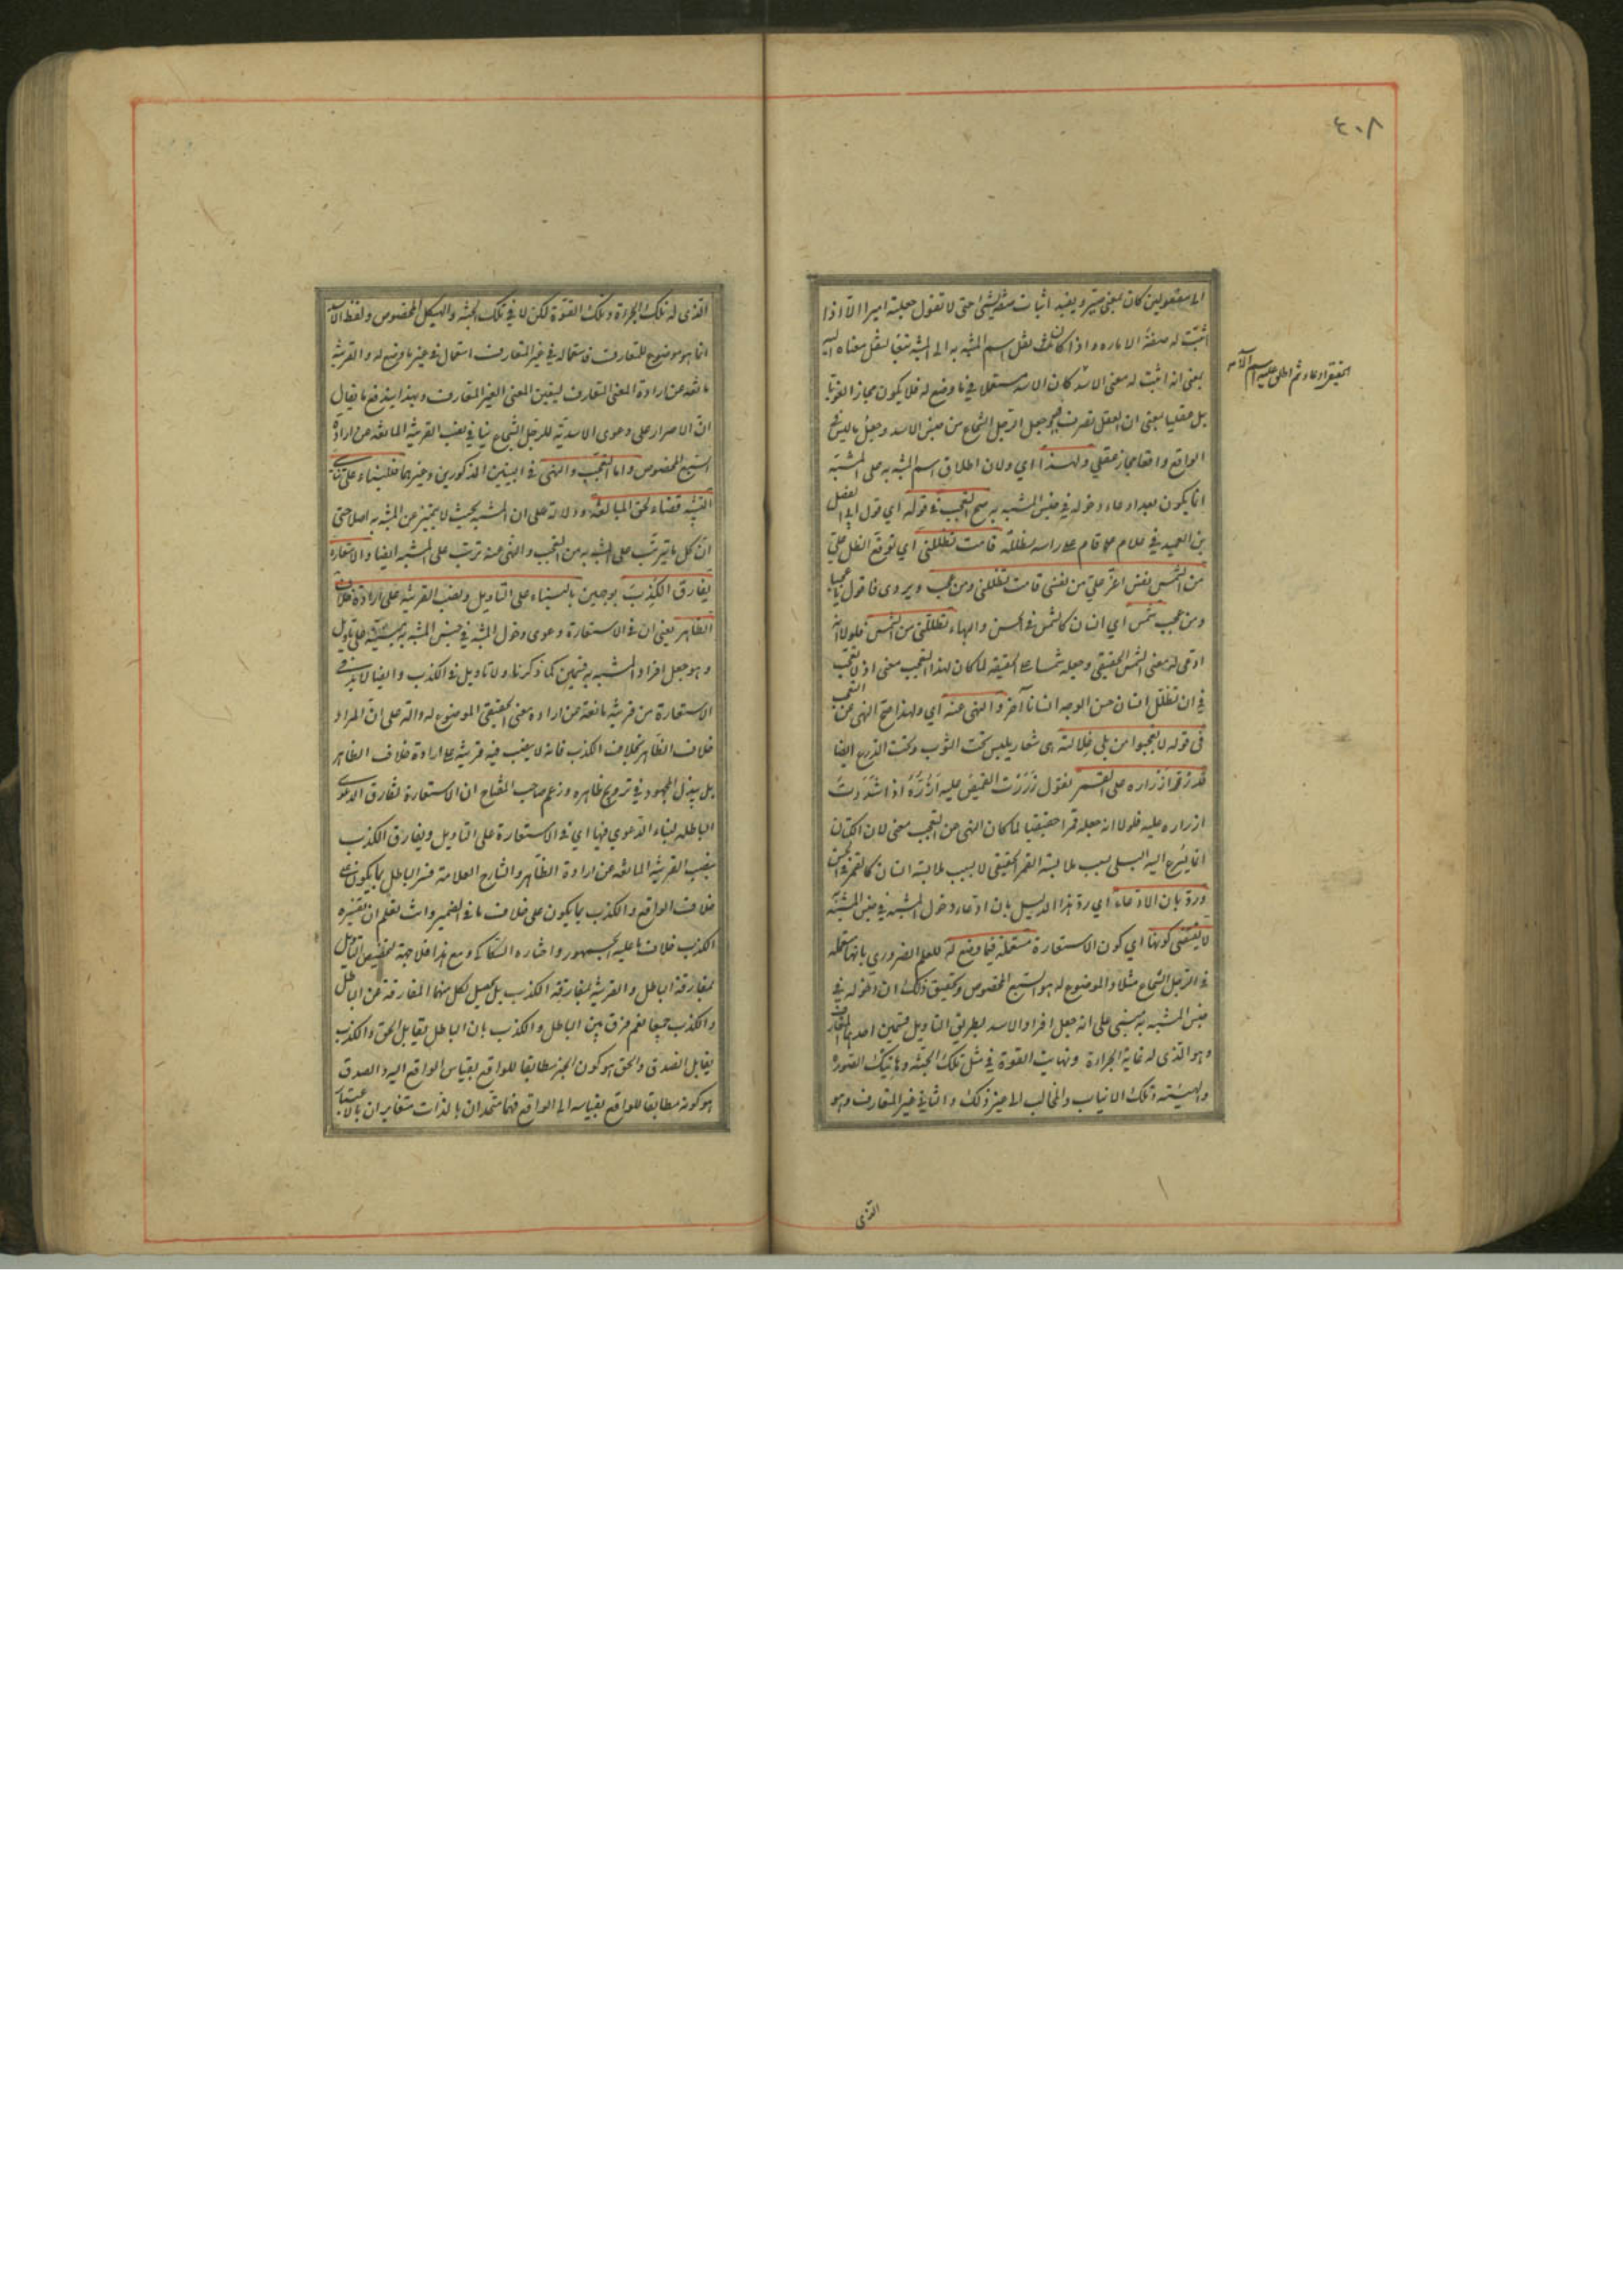 ٤٠٨
الى مفعولين كان بمعنى صير ويفيد اثبات صفة لشئ حتى لا تقول جعلته اميرا الا اذا
اثبت له صفة الامارة واذا كان نقل اسم المشبه به الى المشبه تبعا لنقل معناه اليه
بمعنى انه اثبت له معنى الاسد الحقيقي ادعاء ثم اطلق عليه اسم الاسد
كان الاسد مستعملا فيما وضع له فلا يكون مجازا لغويا
بل عقليا بمعنى ان العقل تصرف وجعل الرجل الشجاع من جنس الاسد وجعل ما ليس في
الواقع واقعا مجاز عقلي ولهذا اي ولان اطلاق اسم المشبه به على المشبه
انما يكون بعد ادعاء دخوله في جنس المشبه به صح التعجب في قوله اي قول ابي الفضل
بن العميد في غلام قام على راسه يظلله قامت تظللني اي توقع الظل علي
من الشمس نفس اعز علي من نفسي قامت تظللني ومن عجب ويروى فاقول يا عجبا
ومن عجب شمس اي انسان كالشمس في الحسن والبهاء تظللني من الشمس فلولا انه
ادعى له معنى الشمس الحقيقي وجعله شمسا على الحقيقة لما كان لهذا التعجب معنى اذ لا تعجب
في ان تظلل انسان حسن الوجه انسانا آخر والنهي عنه اي ولهذا صح النهي عن التعجب
في قوله لا تعجبوا من بلى غلالته هي شعار يلبس تحت الثوب وتحت الدرع ايضا
قد زر ازراره على القمر تقول زررت القميص عليه ازره اذا شددت
ازراره عليه فلولا انه جعله قمرا حقيقيا لما كان للنهي عن التعجب معنى لان الكتان
انما يسرع اليه البلى بسبب ملابسة القمر الحقيقي لا بسبب ملابسة انسان كالقمر في الحسن
ورد بان الادعاء اي رد هذا الدليل بان ادعاء دخول المشبه في جنس المشبه به
لا يقتضي كونها اي كون الاستعارة مستعملة فيما وضع له للعلم الضروري بانها مستعملة
في الرجل الشجاع مثلا والموضوع له هو السبع المخصوص وتحقيق ذلك ان دخوله في
جنس المشبه به مبني على انه جعل افراد الاسد بطريق التاويل قسمين احدهما المتعارف
وهو الذي له غاية الجراءة ونهاية القوة في مثل تلك الجثة وهاتيك الصورة
والهيئة وتلك الانياب والمخالب الى غير ذلك والثاني غير المتعارف وهو
الذي
الذي له تلك الجراءة وتلك القوة لكن لا في تلك الجثة والهيكل المخصوص ولفظ الاسد
انما هو موضوع للمتعارف فاستعماله في غير المتعارف استعمال في غير ما وضع له والقرينة
مانعة عن ارادة المعنى المتعارف ليتعين المعنى الغير المتعارف وبهذا يندفع ما يقال
ان الاصرار على دعوى الاسدية للرجل الشجاع ينافي نصب القرينة المانعة عن ارادة
السبع المخصوص واما التعجب والنهي في البيتين المذكورين وغيرهما فللبناء على تناسي
التشبيه قضاء لحق المبالغة ودلالة على ان المشبه بحيث لا يتميز عن المشبه به اصلا حتى
ان كل ما يترتب على المشبه به من التعجب والنهي عنه ترتب على المشبه ايضا والاستعارة
تفارق الكذب بوجهين بالبناء على التاويل ونصب القرينة على ارادة خلاف
الظاهر يعني ان في الاستعارة دعوى دخول المشبه في جنس المشبه به مبنية على تاويل
وهو جعل افراد المشبه به قسمين كما ذكرنا ولا تاويل في الكذب وايضا لا بد في
الاستعارة من قرينة مانعة عن ارادة معنى الحقيقي الموضوع له دالة على ان المراد
خلاف الظاهر بخلاف الكذب فانه لا ينصب فيه قرينة على ارادة خلاف الظاهر
بل يبذل المجهود في ترويج ظاهره وزعم صاحب المفتاح ان الاستعارة تفارق الدعوى
الباطلة لبناء الدعوى فيها اي في الاستعارة على التاويل وتفارق الكذب
بنصب القرينة المانعة عن ارادة الظاهر والشارح العلامة فسر الباطل بما يكون على
خلاف الواقع والكذب بما يكون على خلاف ما في الضمير وانت تعلم ان تفسيره
الكذب خلاف ما عليه الجمهور واختاره السكاكي ومع هذا فلا جهة لتخصيص التاويل
بمفارقة الباطل والقرينة بمفارقة الكذب بل يحصل بكل منهما المفارقة عن الباطل
والكذب جميعا نعم فرق بين الباطل والكذب بان الباطل يقابل الحق والكذب
يقابل الصدق والحق هو كون الخبر مطابقا للواقع بقياس الواقع اليه والصدق
هو كونه مطابقا للواقع بقياسه الى الواقع فهما متحدان بالذات متغايران بالاعتبار